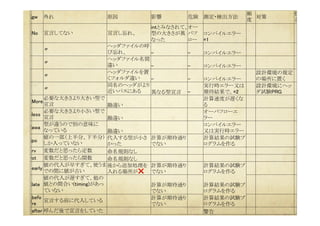 gw 外れ 原因 影響 危険 測定・検出方法 頻度 対策
No 宣言してない 宣言し忘れ、 intとみなされて、型の大きさが異なった オーバフロー コンパイルエラー *1
〃 ヘッダファイルの呼び忘れ、 － － コンパイルエラー
〃 ヘッダファイル名間違い － － コンパイルエラー
〃 ヘッダファイルを置くフォルダ違い － － コンパイルエラー 設計環境の規定の場所に置く
〃 同名のヘッダがより近いパスにある 異なる型宣言 － 実行時エラー又は期待結果で、*2 設計環境にヘッダ試験PRG
More 必要な大きさより大きい型で宣言 勘違い 計算速度が遅くなる
less 必要な大きさより小さい型で宣言 勘違い オーバフローエラー
awa 型が違うので別の意味になっている 勘違い コンパイルエラー又は実行時エラー
po 値の一部（上半分、下半分）しか入っていない 代入する型が小さかった 計算が期待通りでない 計算結果の試験プログラムを作る
rv 変数だと思ったら定数 命名規則なし
ot 定数だと思ったら関数 命名規則なし
early 値の代入が早すぎて、使うまでの間に値が古い 後から追加処理を入れる場所が❌ 計算が期待通りでない 計算結果の試験プログラムを作る
late 値の代入が遅すぎて、他の値との間合い(timing)があっていない 計算が期待通りでない 計算結果の試験プログラムを作る
before 宣言する前に代入している 計算が期待通りでない 計算結果の試験プログラムを作る
after 呼んだ後で宣言をしていた 警告